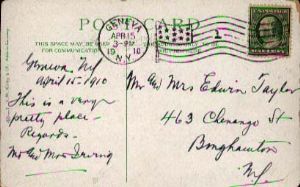 POST CARD
THIS SPACE MAY BE
FOR COMMUNICATION
GENEVA
APR 15
3-PM
1910
N.Y.
1
Geneva Ny
April 15-1910
This is a very
pretty place-
Regards-
Mr and Mrs Irving
Mr and Mrs Edwin Taylor
463 Chenango St
Binghamton
Ny.